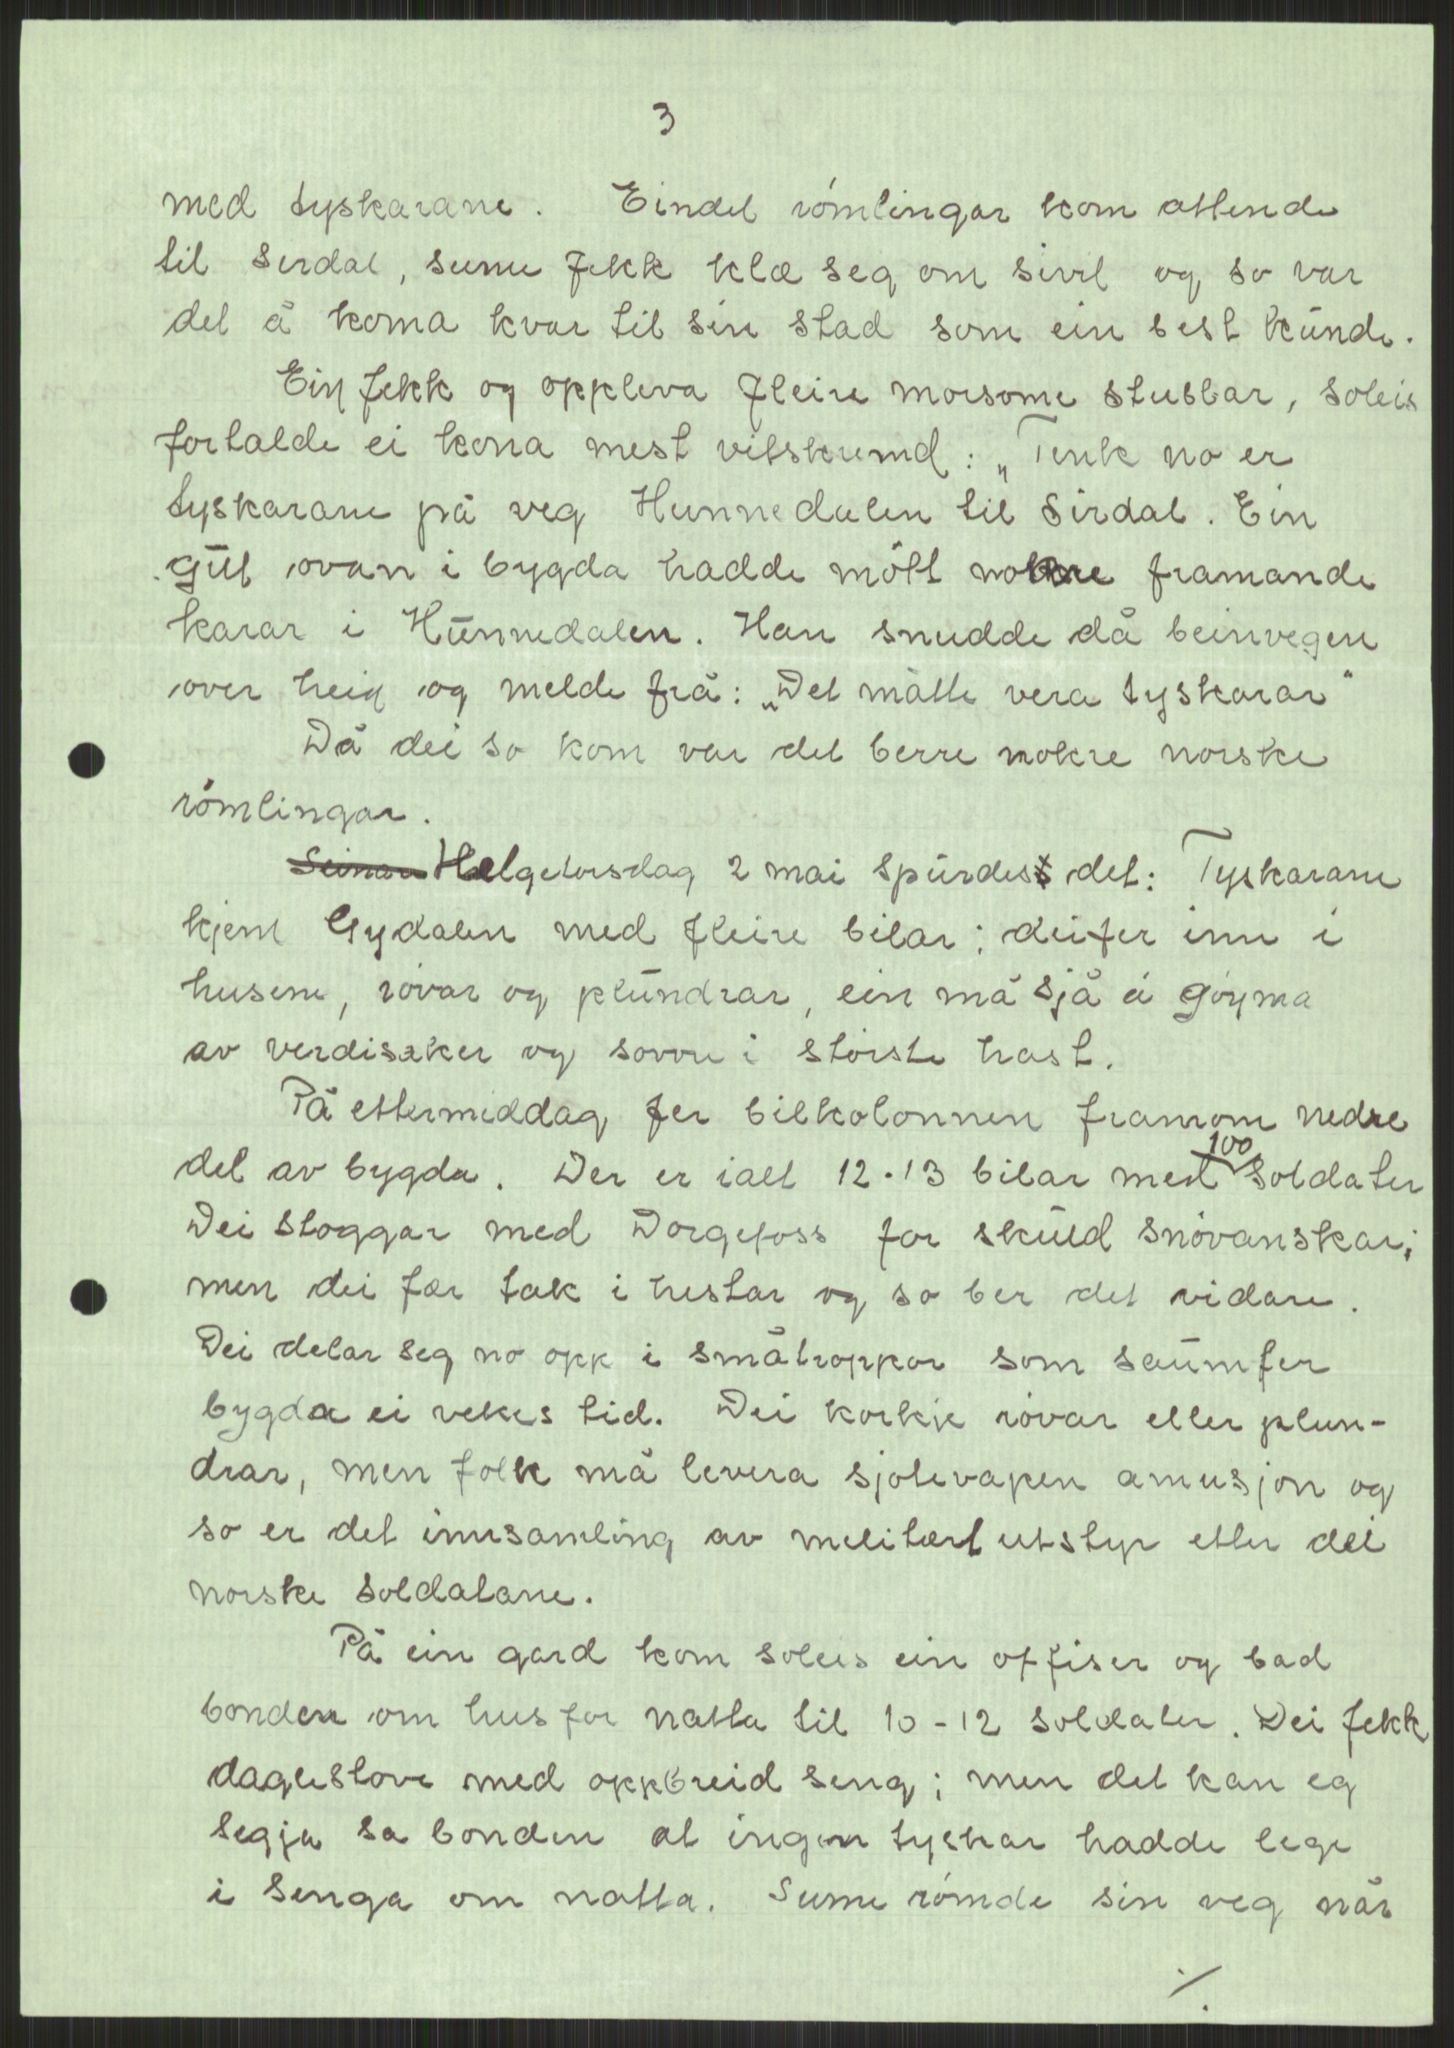 3
med tyskarane. Eindel rómlingar kom attende
til Serdal, sume fekk klæ seg om sivil og so var
det å koma kvar til sin stad som ein best kunde.
Ein fekk og oppleva fleire morsome stubbar, soleis
fortalde ei kona mest vitskremd: „Tenk no er
tyskarane på veg Hunnedalen til Sirdal. Ein
gut ovan i bygda hadde mótt nokre framande
karar i Hunnedalen. Han snudde då beinvegen
over heia og melde frå: „Det måtte vera tyskarar"
Då dei so kom var det berre nokre norske
rómlingar.
Seinare Helgetorsdag 2 mai spurdest det: Tyskarane
kjem Gydalen med fleire bilar; dei fer inn i
husene, róvar og plundrar, ein må sjå å góyma
av verdisaker og sovore i stórste hast.
På ettermiddag fer bilkolonnen framom nedre
del av bygda. Der er ialt 12-13 bilar med 100 soldater
Dei stoggar med Dorgefoss for skuld snóvanskar;
men dei fær tak i hestar og so ber det vidare.
Dei delar seg no opp i småtroppar som saumfer
bygda ei vekes tid. Dei korkje róvar eller plun-
drar, men folk må levera sjotevapen amusjon og
so er det innsamling av melitært utstyr etter dei
norske soldatane.
På ein gard kom soleis ein offiser og bad
bonden om hus for natta til 10-12 soldater. Dei fekk
daglestove med oppbreid seng; men det kan eg
segja sa bonden at ingen tyskar hadde lege
i senga om natta. Sume rómde sin veg når
./.